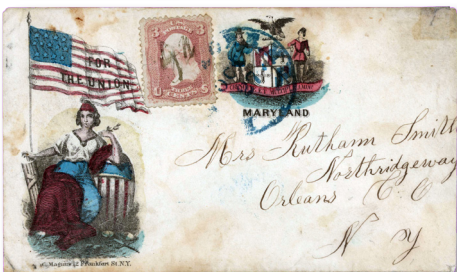 FOR
THE UNION
3 3
THREE
CENTS
MARYLAND
Mrs Ruthann Smith
Northridgeway
Orleans Co
N Y
Magnus 12 Frankfort St N.Y.